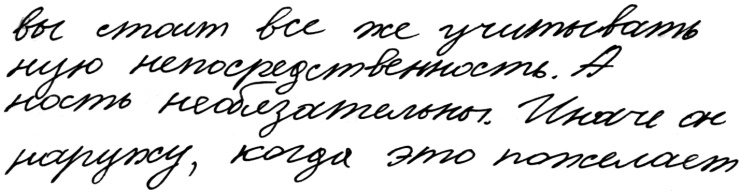 вы стоит все же учитывать
ную непосредственность. А
ность необязательны. Иначе он
наружу, когда это пожелает